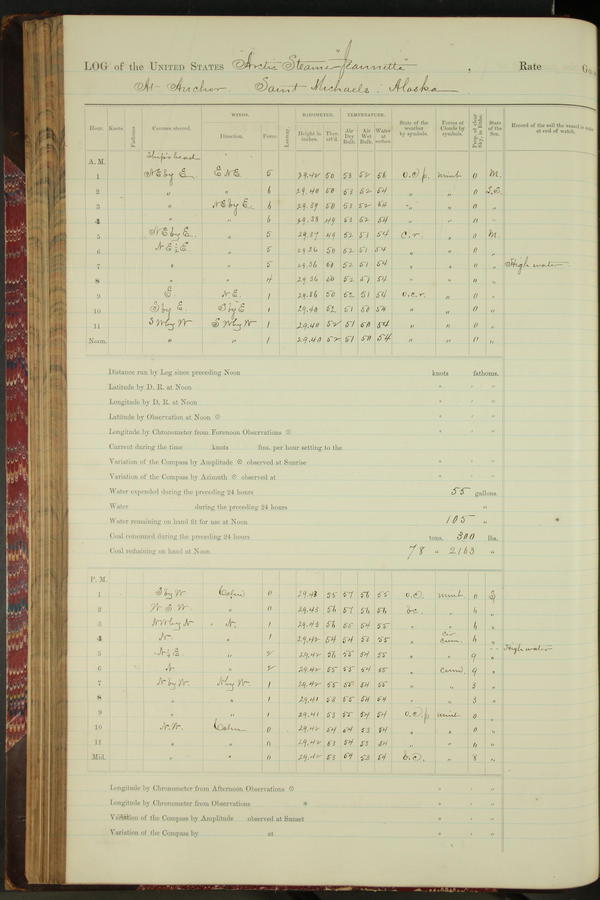 LOG of the UNITED STATES Arctic Steamer "Jeannette" , Rate
At Anchor. Saint Michaels. Alaska
WINDS. BAROMETER. TEMPERATURE.
Hour. Knots. Fathoms. Courses steered. Direction. Force. Leeway. Height in inches. Ther. att'd. Air Dry Bulb. Air Wet Bulb. Water at surface. State of the weather by symbols. Forms of Clouds by symbols. Prop. of clear Sky, in 10ths. State of the Sea. Record of the sail the vessel is under at end of watch.
A. M. Ship's head
1 NE by E. E NE. 5 29.42 50 53 52 56 o.c.p. nimb. 0 M.
2 " " 6 29.40 50 53 52 54 " " 0
3 " NE by E. 6 29.39 50 53 52 54 " " 0 "
4 " " 6 29.38 49 53 52 54 " " 0 "
5 NE by E. " 5 29.37 49 52 51 54 c.r. " 0 M.
6 NE ½ E " 5 29.36 50 52 51 54 " " 0 "
7 " " 5 29.36 52 51 54 " " 0 " High water
8 " " 4 29.36 52 51 54 " " 0 "
9 E NE. 1 29.36 50 52 51 54 o.c.r. " 0 "
10 S by E. S by E 1 29.40 52 51 50 54 " " 0 "
11 S W by W S W by W 1 29.40 52 51 50 54 " " 0 "
Noon. " " 1 29.40 52 51 50 54 " " 0 "
Distance run by Log since preceding Noon knots fathoms.
Latitude by D. R. at Noon
Longitude by D. R. at Noon
Latitude by Observation at Noon
Longitude by Chronometer from Forenoon Observations
Current during the time knots fms. per hour setting to the
Variation of the Compass by Amplitude observed at Sunrise
Variation of the Compass by Azimuth observed at
Water expended during the preceding 24 hours 55 gallons
Water during the preceding 24 hours "
Water remaining on hand fit for use at Noon 105 "
Coal consumed during the preceding 24 hours tons. 300 lbs.
Coal remaining on hand at Noon 78 " 2163 "
P. M.
1 S by W Calm 0 29.43 55 57 56 55 o.c. nimb. 0 S
2 W S W. " 0 29.43 56 57 56 56 bc. " "
3 NW by N. N. 1 29.43 56 55 54 55 " " "
4 N. " 1 29.42 54 54 53 55 " cir cum. "
5 N ½ E " 2 29.42 56 55 54 55 " " 9 " High water
6 N " 2 29.42 55 55 54 55 " cum. 9 "
7 N by W. N by W. 1 29.42 55 55 54 55 " " 3 "
8 " " 1 29.41 53 55 54 54 " " 3 "
9 " " 1 29.41 53 55 54 54 o.c.p nimb. 0 "
10 N.W. Calm 0 29.42 54 54 53 54 " " 0 "
11 " " 0 29.42 53 54 53 54 " " 0 "
Mid. " " 0 29.42 53 54 53 54 b.c. " 8 "
Longitude by Chronometer from Afternoon Observations
Longitude by Chronometer from Observations
Variation of the Compass by Amplitude observed at Sunset
Variation of the Compass by at